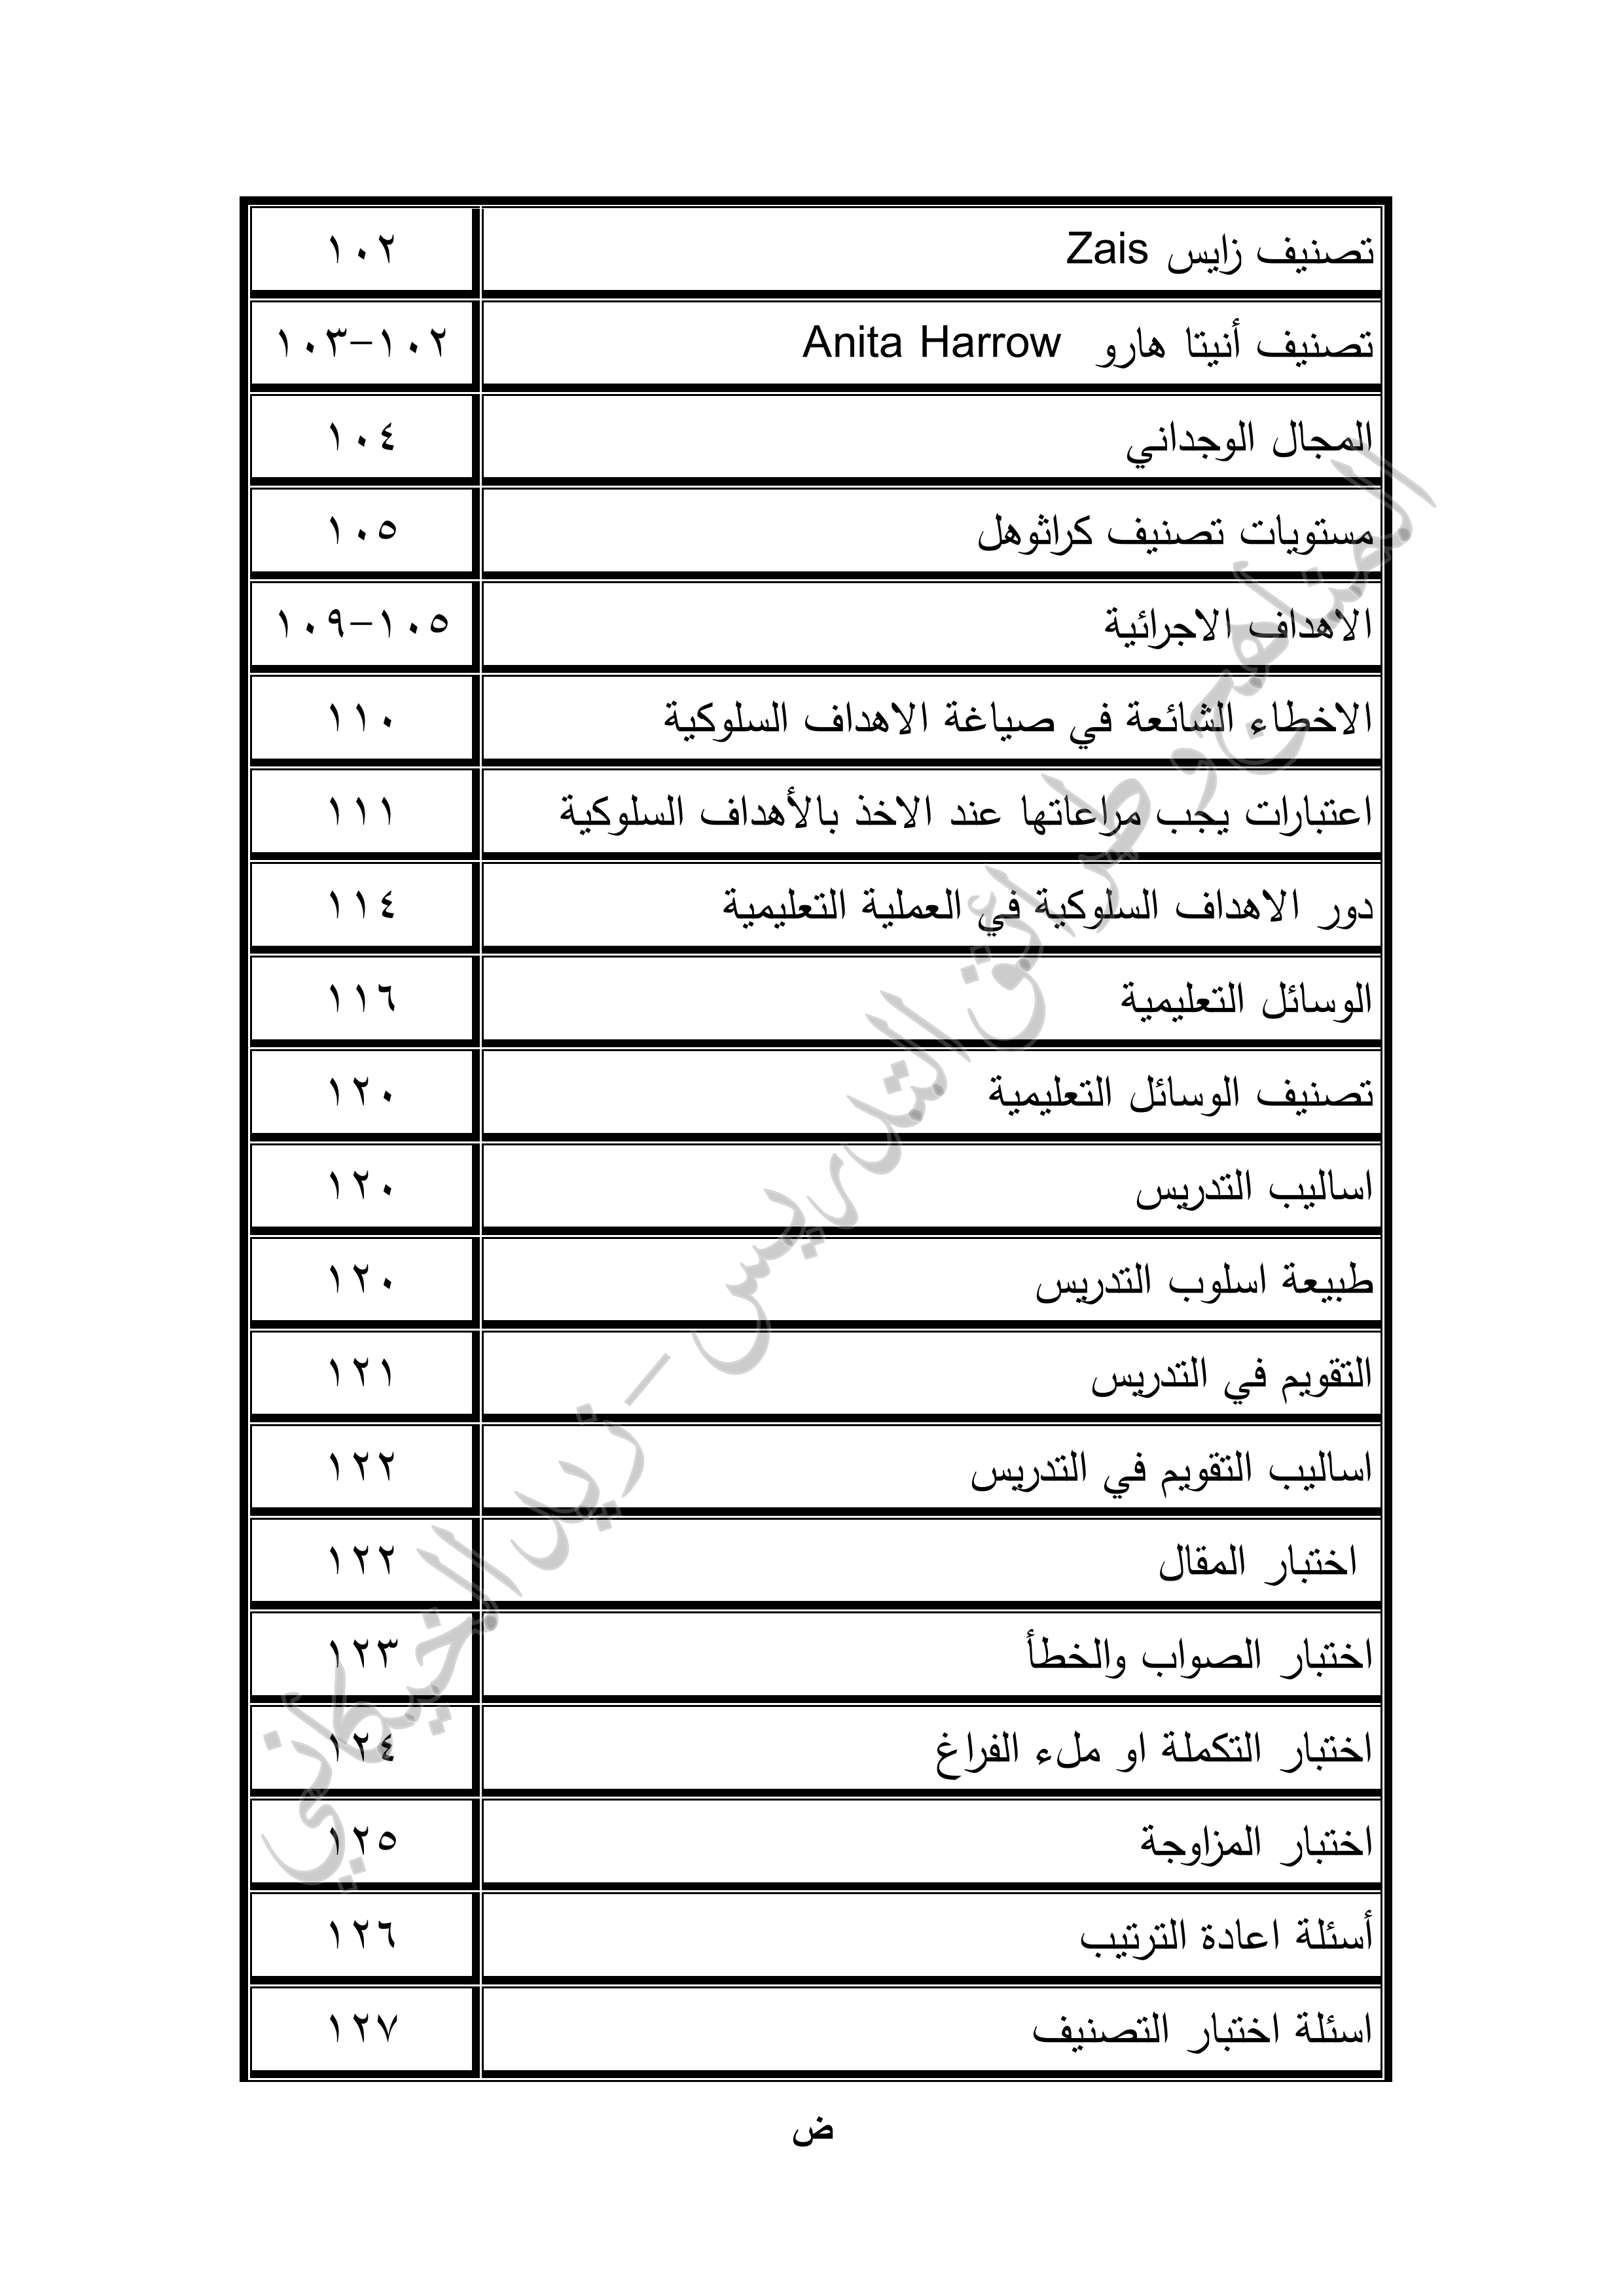 تصنيف زايس Zais ١٠٢
تصنيف أنيتا هارو Anita Harrow ١٠٢-١٠٣
المجال الوجداني ١٠٤
مستويات تصنيف كراثوهل ١٠٥
الاهداف الاجرائية ١٠٥-١٠٩
الاخطاء الشائعة في صياغة الاهداف السلوكية ١١٠
اعتبارات يجب مراعاتها عند الاخذ بالأهداف السلوكية ١١١
دور الاهداف السلوكية في العملية التعليمية ١١٤
الوسائل التعليمية ١١٦
تصنيف الوسائل التعليمية ١٢٠
اساليب التدريس ١٢٠
طبيعة اسلوب التدريس ١٢٠
التقويم في التدريس ١٢١
اساليب التقويم في التدريس ١٢٢
اختبار المقال ١٢٢
اختبار الصواب والخطأ ١٢٣
اختبار التكملة او ملء الفراغ ١٢٤
اختبار المزاوجة ١٢٥
أسئلة اعادة الترتيب ١٢٦
اسئلة اختبار التصنيف ١٢٧
ض
المناهج و طرائق التدريس - زيد الخيكاني